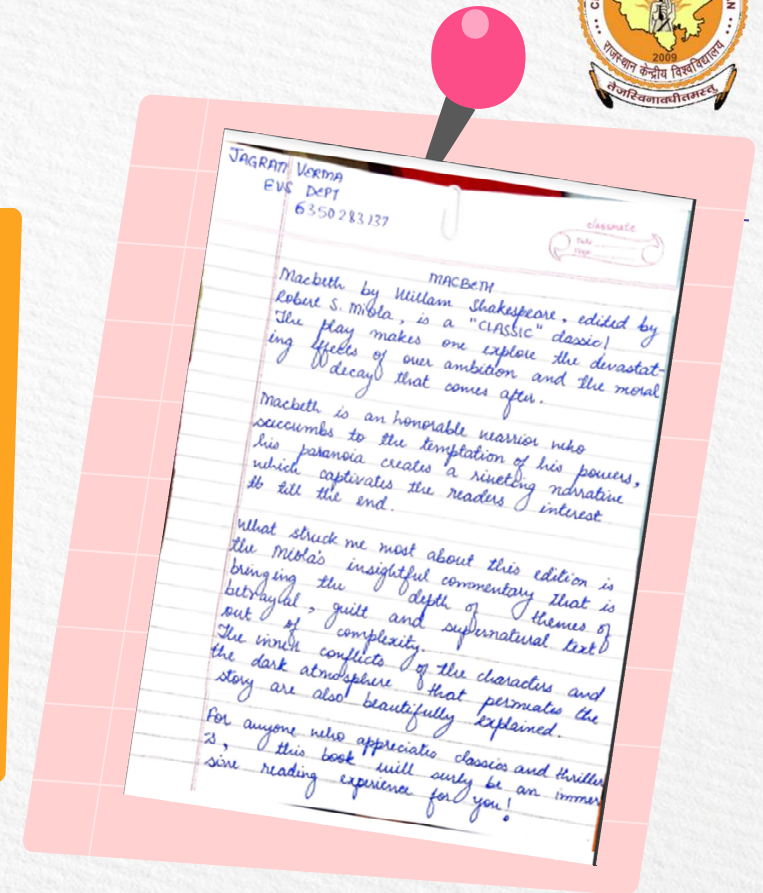 2009
राजस्थान केन्द्रीय विश्वविद्यालय
तेजस्विनावधीतमस्तु
JAGRATI VERMA
EVS DEPT
6350283137
classmate
Date
Page
MACBETH
Macbeth by Willam Shakespeare, edited by
Robert S. Miola, is a "CLASSIC" classic!
The play makes one explore the devastat-
ing effects of over ambition and the moral
decay that comes after.
Macbeth is an honorable warrior who
succumbs to the temptation of his powers,
his paranoia creates a riveting narrative
which captivates the readers interest
till the end.
What struck me most about this edition is
the Miola's insightful commentary that is
bringing the depth of themes of
betrayal, guilt and supernatural text
out of complexity.
The inner conflicts of the characters and
the dark atmosphere that permeates the
story are also beautifully explained.
For anyone who appreciates classics and thriller
s, this book will surly be an immer
sive reading experience for you!